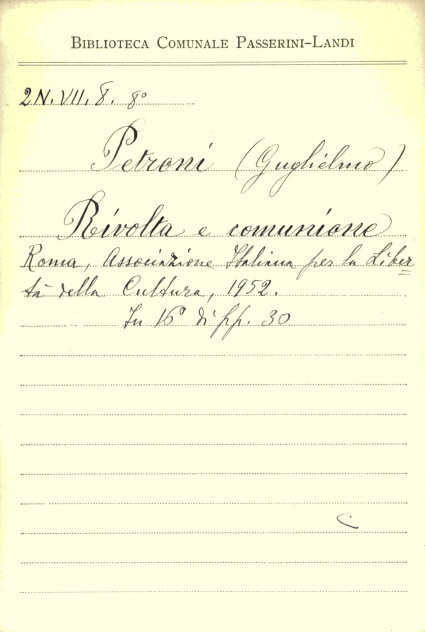 BIBLIOTECA COMUNALE PASSERINI-LANDI
2N.VII.8. 8°
Petroni (Guglielmo)
Rivolta e comunione
Roma, Associazione Italiana per la Liber=
tà della Cultura, 1952.
In 16° di pp. 30
C